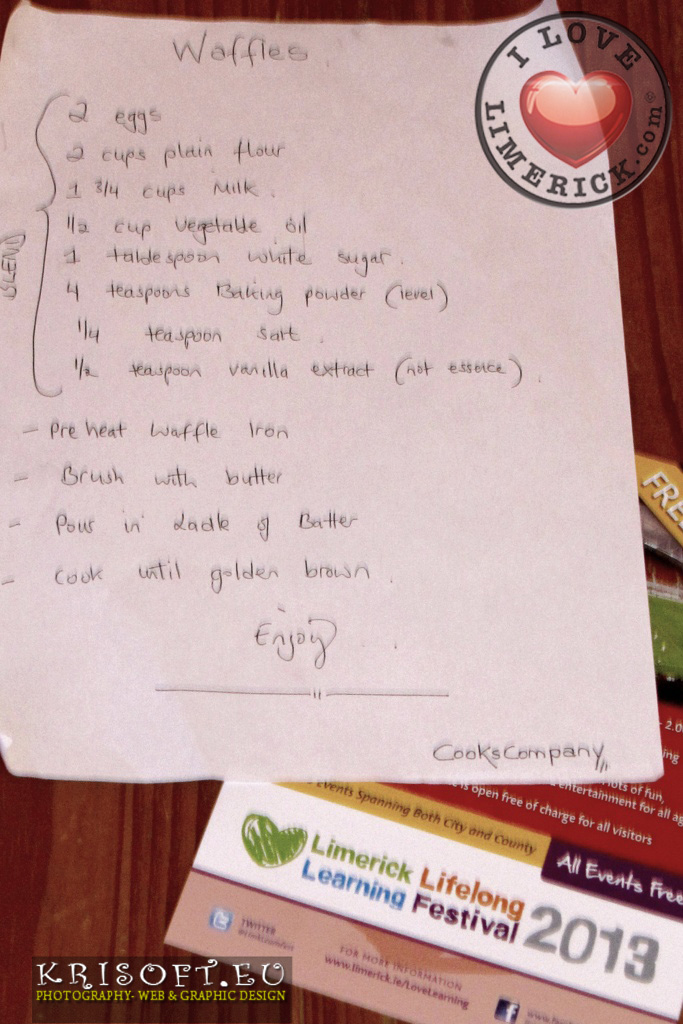 Waffles
I LOVE
LIMERICK.com
BLEND
2 eggs
2 cups plain flour
1 3/4 cups Milk.
1/2 cup vegetable oil
1 tablespoon white sugar.
4 teaspoons Baking powder (level)
1/4 teaspoon salt.
1/2 teaspoon vanilla extract (not essence).
- Pre heat Waffle Iron
- Brush with butter
- Pour in Ladle of Batter
- Cook until golden brown.
Enjoy
CooksCompany
FREE
- 2.0
ing
lots of fun,
entertainment for all ag
is open free of charge for all visitors
Events Spanning Both City and County
All Events Free
Limerick Lifelong
Learning Festival 2013
TWITTER
FOR MORE INFORMATION
www.limerick.ie/LoveLearning
KRISOFT.EU
PHOTOGRAPHY- WEB & GRAPHIC DESIGN